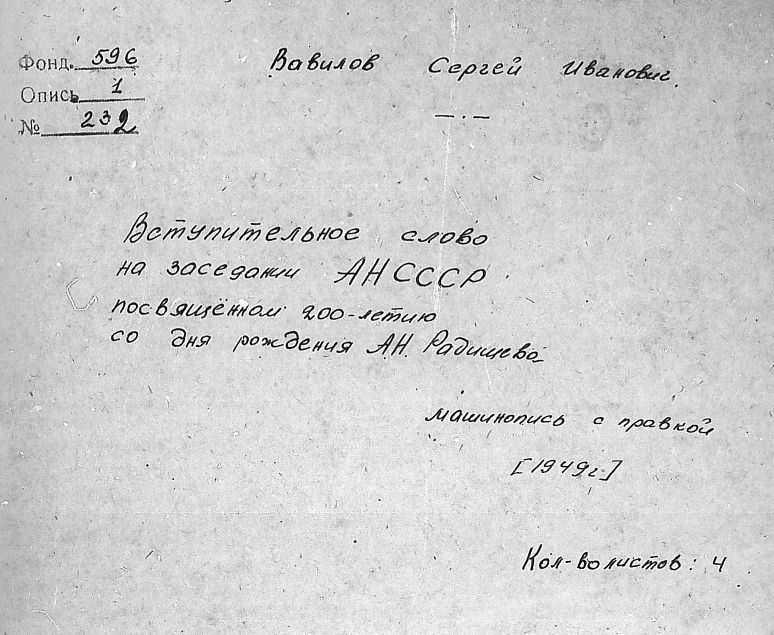 Фонд. 596
Опись 1
№ 232
Вавилов Сергей Иванович.
— . —
Вступительное слово
на заседании АН СССР
посвящённом 200-летию
со дня рождения А.Н. Радищева
машинопись с правкой
[1949г.]
Кол-во листов: 4